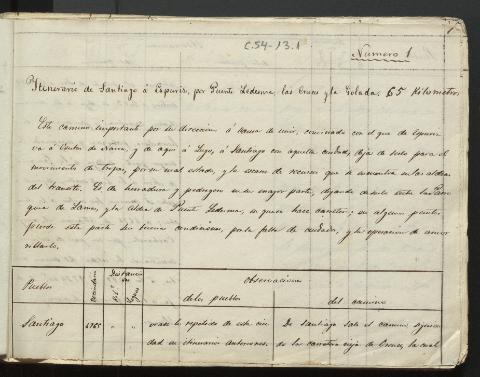 C.54-13.1
Numero 1
Itinerario de Santiago á Esparis, por Puente Ledesma, las Cruces y la Golada. 65 Kilometros
Este camino, importante por su direccion á causa de unir, convinado con el que de Esparis
va á Ventas de Naron, y de aqui á Lugo, á Santiago con aquella ciudad, deja de serlo para el
movimiento de tropas, por su mal estado, y la escasez de recursos que se encuentra en las aldeas
del transito. Es de herradura y pedregoso en su mayor parte, dejando de serlo entre la Parro
quia de Lamas, y la Aldea de Puente Ledesma, en que se hace carretero, y en algunos puntos
pierde esta parte sus buenas condiciones, por la falta de cuidado, y la operacion de amor
rillarlo.
Pueblos
Vecindario
Distancias
en
Leguas
Observaciones
de los pueblos
del camino
Santiago 4765 " " vease lo repetido de esta ciu De Santiago sale el camino siguien
dad en itinerarios anteriores. do la carretera vieja de Orense, la cual